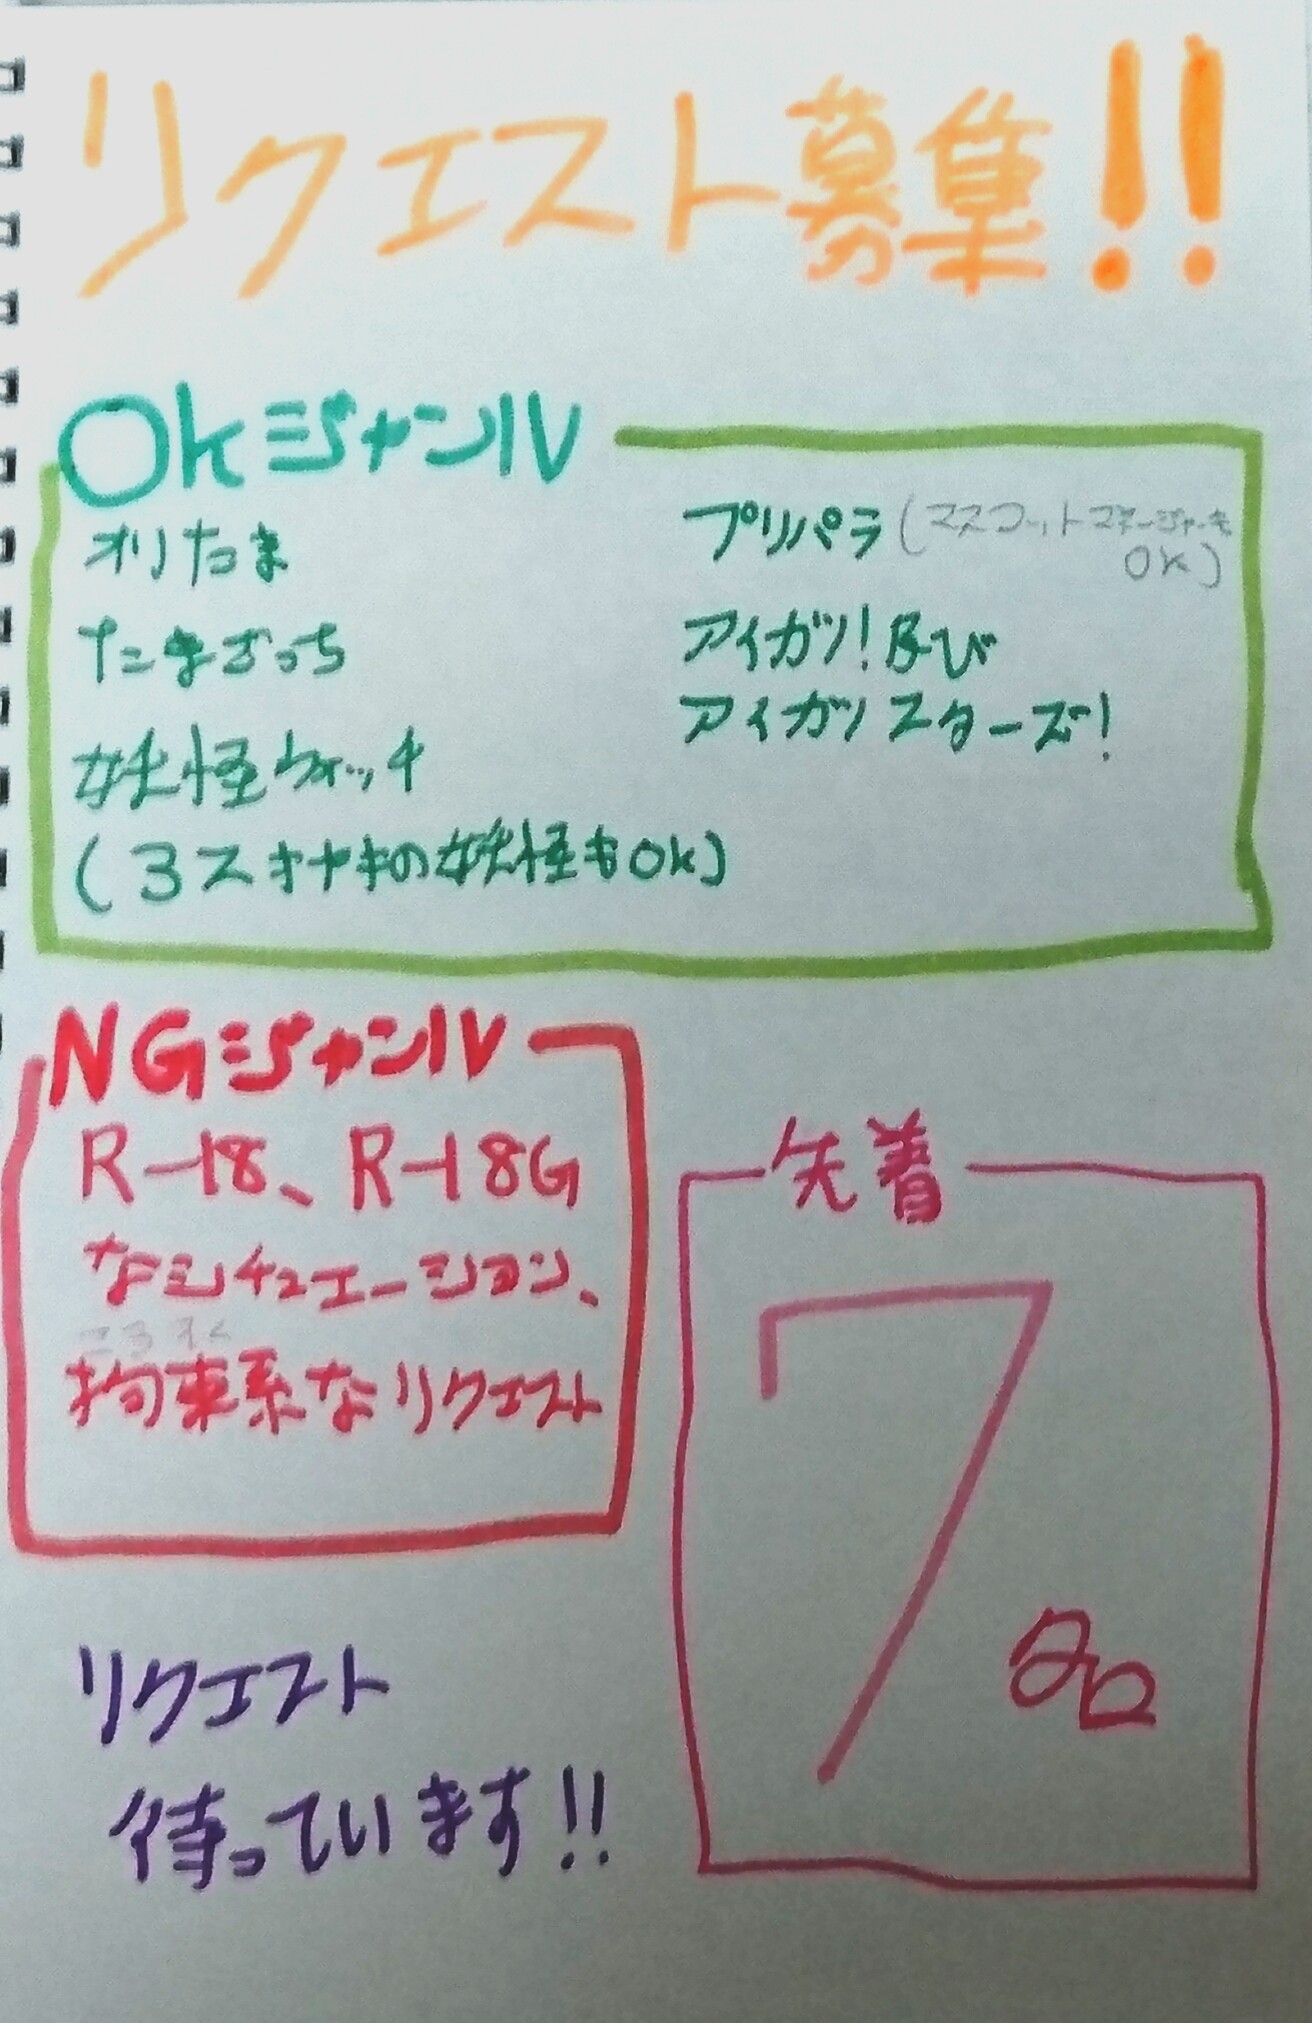 リクエスト募集!!
OKジャンル
オリたま
たまごっち
妖怪ウォッチ
(3スキヤキの妖怪もOK)
プリパラ(マスコットマネージャーも
OK)
アイカツ!及び
アイカツスターズ!
NGジャンル
R-18、R-18G
なシチュエーション、
こうそく
拘束系なリクエスト
先着
7
名
リクエスト
待っています!!